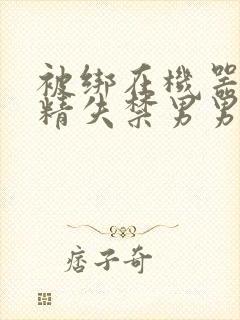 被绑在機器
精失禁男男
痞子奇